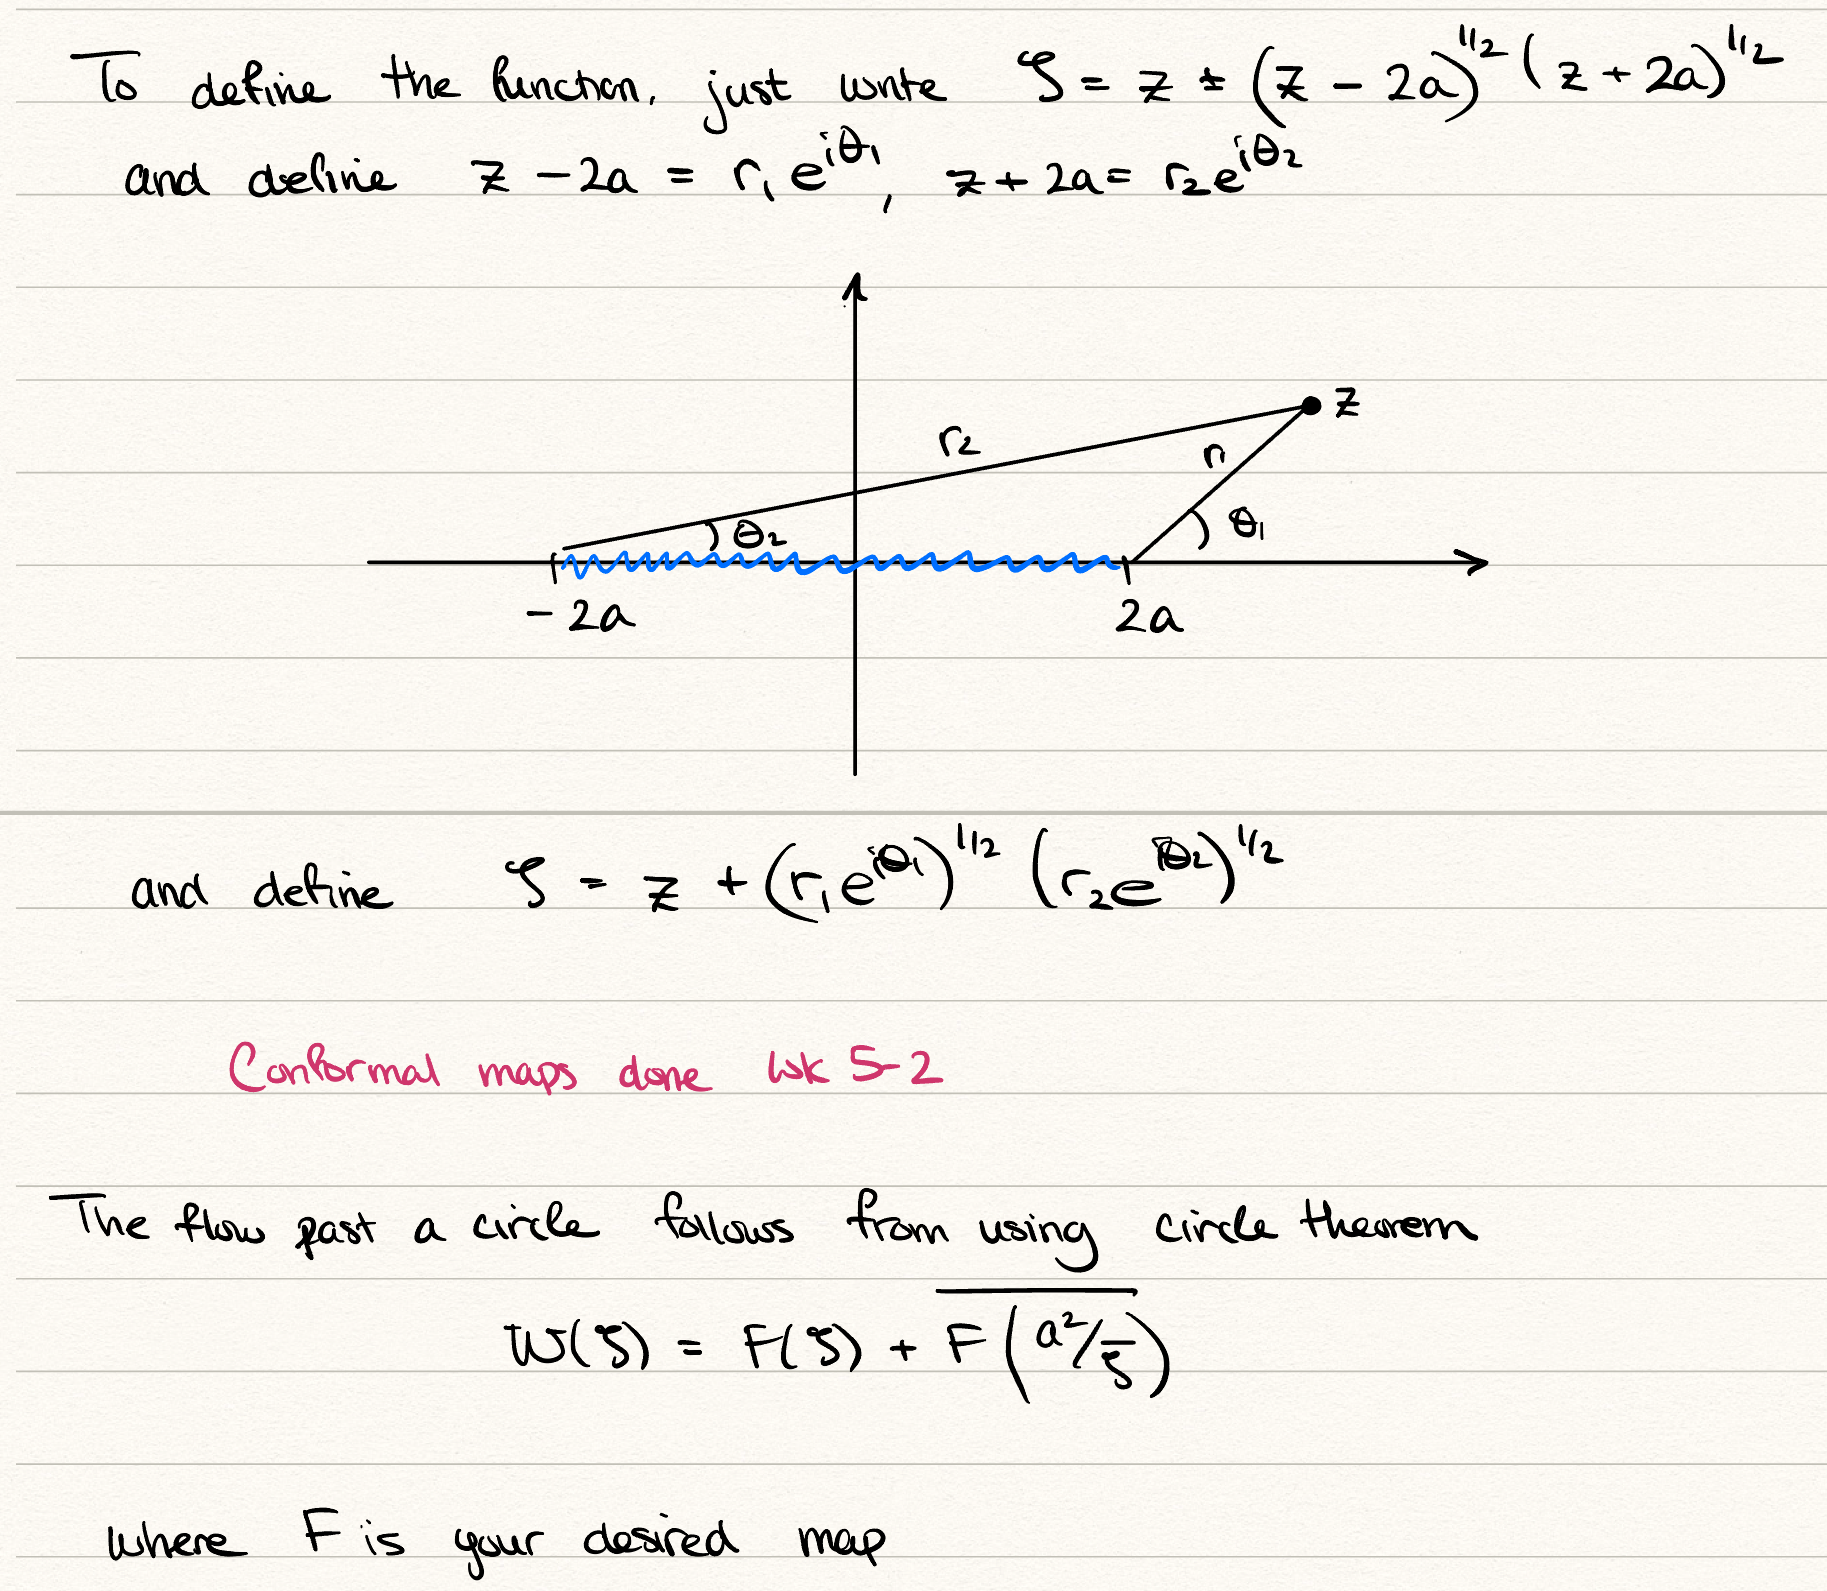 To define the function, just write ζ = z ± (z - 2a)^{1/2} (z + 2a)^{1/2}
and define z - 2a = r₁ e^{iθ₁}, z + 2a = r₂ e^{iθ₂}
z
r₂
r₁
θ₂
θ₁
-2a
2a
and define ζ = z + (r₁e^{iθ₁})^{1/2} (r₂e^{iθ₂})^{1/2}
Conformal maps done wk 5-2
The flow past a circle follows from using circle theorem
W(ζ) = F(ζ) + \overline{F(a²/\overline{ζ})}
where F is your desired map